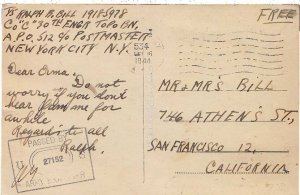 Pvt RALPH R. BILL 19185978
Co "C" 30TH ENGR TOPO BN,
A.P.O. 512 % POSTMASTER
NEW YORK CITY N.Y.
FREE
534
1944
Dear Orma:
Do not
worry if you don't
hear from me for
awhile
Regards to all
Ralph.
MR & MRS BILL
746 ATHEN'S ST.,
SAN FRANCISCO 12,
CALIFORNIA
PASSED BY
U
27152
ARMY